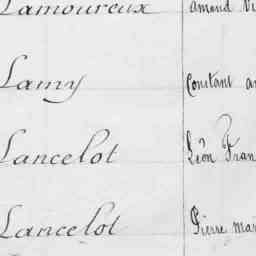 Lamoureux Amand Vi
Lamy Constant a
Lancelot Léon Fran
Lancelot Pierre Mar